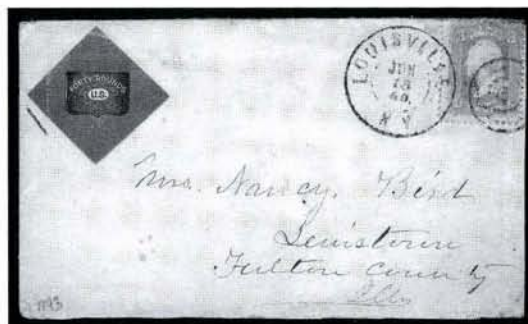 FORTY ROUNDS
U.S.
LOUISVILLE
JUN
KY
Mrs. Nancy. Bird
Lewistown
Fulton County
Ills
1193